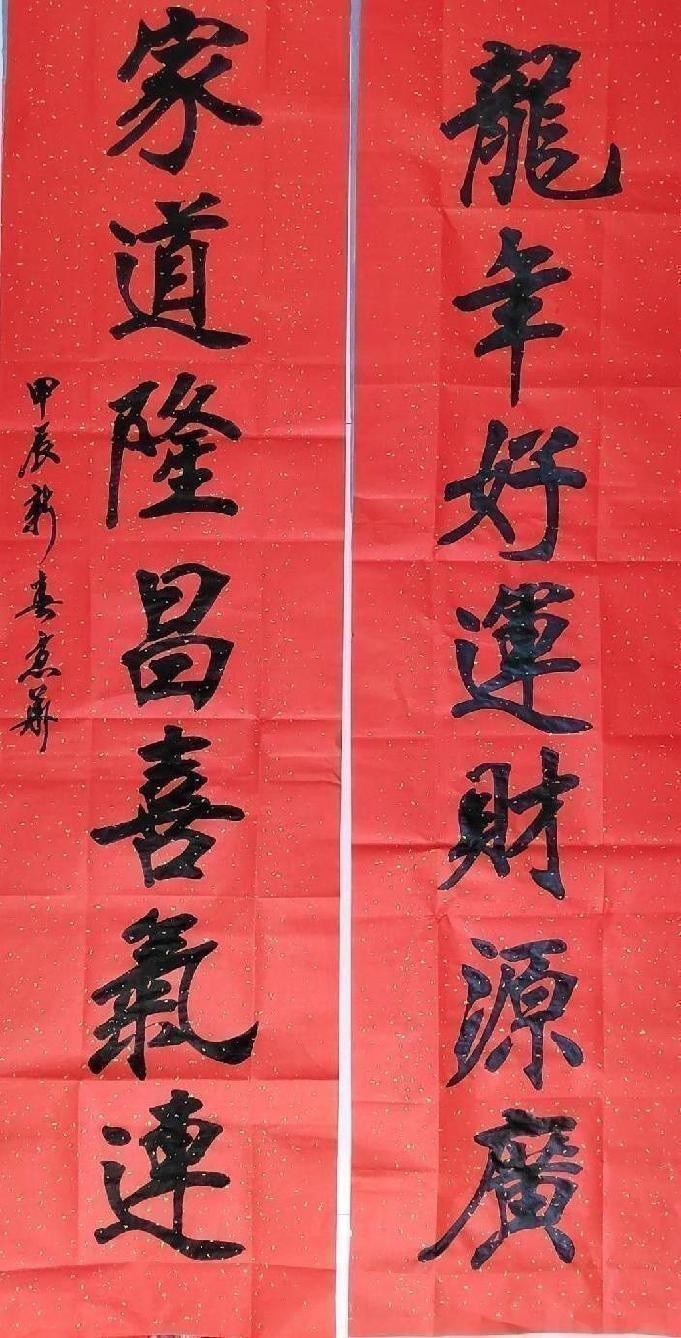 龍年好運財源廣
家道隆昌喜氣連
甲辰新春京華